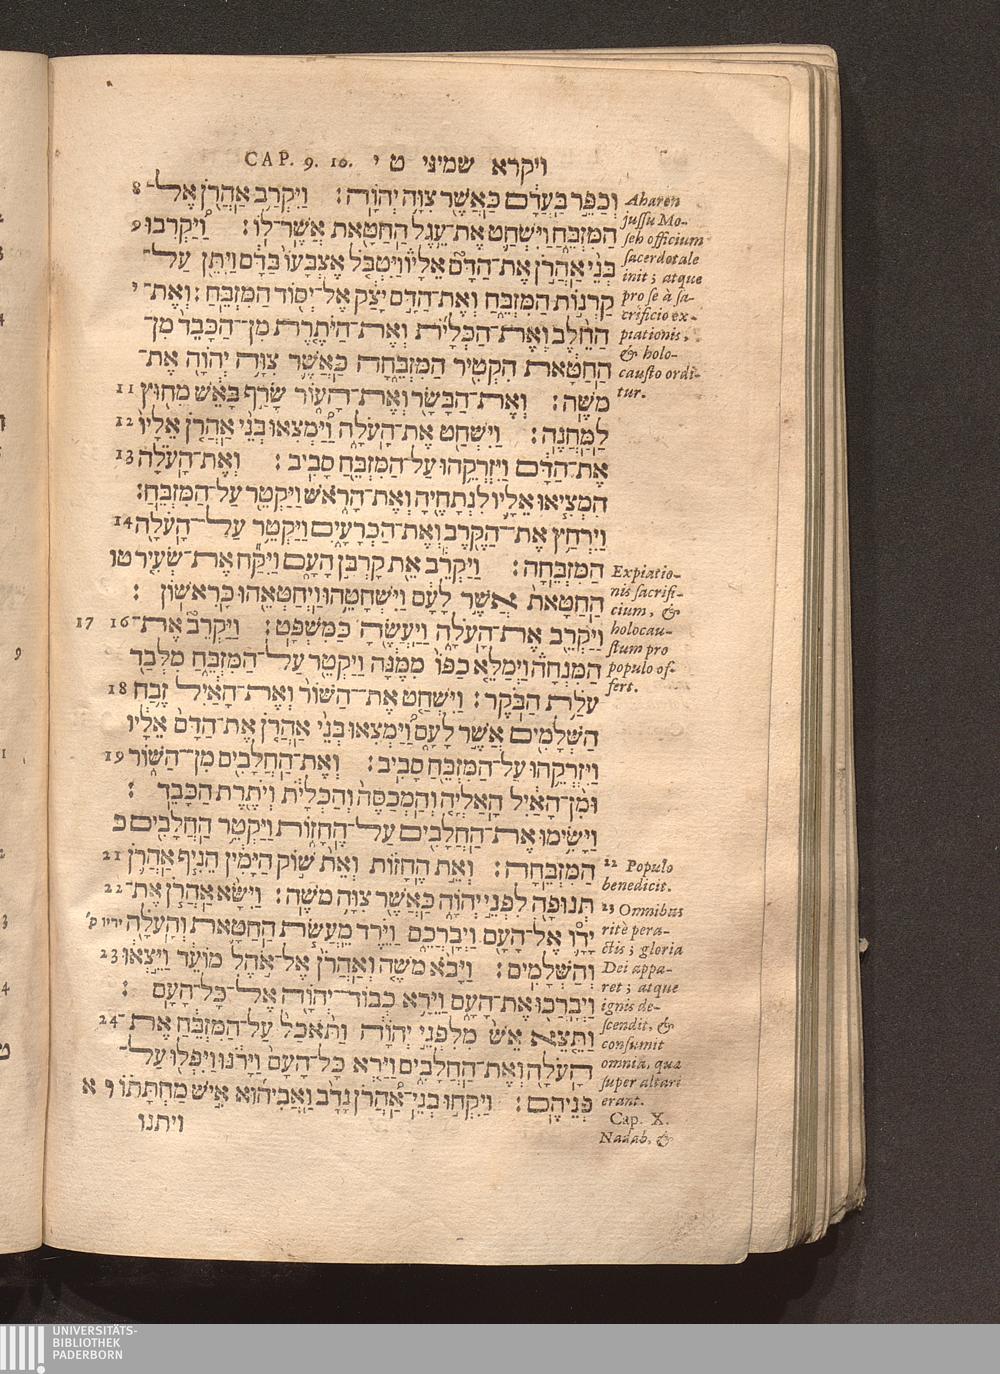 CAP. 9. 10. ויקרא שמיני ט י
וְכַפֵּר בַּעֲדָם כַּאֲשֶׁר צִוָּה יְהוָה׃ וַיִּקְרַב אַהֲרֹן אֶל־ 8
הַמִּזְבֵּחַ וַיִּשְׁחַט אֶת־עֵגֶל הַחַטָּאת אֲשֶׁר־לוֹ׃ וַיַּקְרִבוּ 9
בְּנֵי אַהֲרֹן אֶת־הַדָּם אֵלָיו וַיִּטְבֹּל אֶצְבָּעוֹ בַּדָּם וַיִּתֵּן עַל־
קַרְנוֹת הַמִּזְבֵּחַ וְאֶת־הַדָּם יָצַק אֶל־יְסוֹד הַמִּזְבֵּחַ׃ וְאֶת־ י
הַחֵלֶב וְאֶת־הַכְּלָיֹת וְאֶת־הַיֹּתֶרֶת מִן־הַכָּבֵד מִן־
הַחַטָּאת הִקְטִיר הַמִּזְבֵּחָה כַּאֲשֶׁר צִוָּה יְהוָה אֶת־
מֹשֶׁה׃ וְאֶת־הַבָּשָׂר וְאֶת־הָעוֹר שָׂרַף בָּאֵשׁ מִחוּץ 11
לַמַּחֲנֶה׃ וַיִּשְׁחַט אֶת־הָעֹלָה וַיַּמְצִאוּ בְּנֵי אַהֲרֹן אֵלָיו 12
אֶת־הַדָּם וַיִּזְרְקֵהוּ עַל־הַמִּזְבֵּחַ סָבִיב׃ וְאֶת־הָעֹלָה 13
הִמְצִיאוּ אֵלָיו לִנְתָחֶיהָ וְאֶת־הָרֹאשׁ וַיַּקְטֵר עַל־הַמִּזְבֵּחַ׃
וַיִּרְחַץ אֶת־הַקֶּרֶב וְאֶת־הַכְּרָעָיִם וַיַּקְטֵר עַל־הָעֹלָה 14
הַמִּזְבֵּחָה׃ וַיַּקְרֵב אֵת קָרְבַּן הָעָם וַיִּקַּח אֶת־שְׂעִיר טו
הַחַטָּאת אֲשֶׁר לָעָם וַיִּשְׁחָטֵהוּ וַיְחַטְּאֵהוּ כָּרִאשׁוֹן׃
וַיַּקְרֵב אֶת־הָעֹלָה וַיַּעֲשֶׂהָ כַּמִּשְׁפָּט׃ וַיַּקְרֵב אֶת־ 16 17
הַמִּנְחָה וַיְמַלֵּא כַפּוֹ מִמֶּנָּה וַיַּקְטֵר עַל־הַמִּזְבֵּחַ מִלְּבַד
עֹלַת הַבֹּקֶר׃ וַיִּשְׁחַט אֶת־הַשּׁוֹר וְאֶת־הָאַיִל זֶבַח 18
הַשְּׁלָמִים אֲשֶׁר לָעָם וַיַּמְצִאוּ בְּנֵי אַהֲרֹן אֶת־הַדָּם אֵלָיו
וַיִּזְרְקֵהוּ עַל־הַמִּזְבֵּחַ סָבִיב׃ וְאֶת־הַחֲלָבִים מִן־הַשּׁוֹר 19
וּמִן־הָאַיִל הָאַלְיָה וְהַמְכַסֶּה וְהַכְּלָיֹת וְיֹתֶרֶת הַכָּבֵד׃
וַיָּשִׂימוּ אֶת־הַחֲלָבִים עַל־הֶחָזוֹת וַיַּקְטֵר הַחֲלָבִים כ
הַמִּזְבֵּחָה׃ וְאֵת הֶחָזוֹת וְאֵת שׁוֹק הַיָּמִין הֵנִיף אַהֲרֹן 21
תְּנוּפָה לִפְנֵי יְהוָה כַּאֲשֶׁר צִוָּה מֹשֶׁה׃ וַיִּשָּׂא אַהֲרֹן אֶת־ 22
יָדָו אֶל־הָעָם וַיְבָרֲכֵם וַיֵּרֶד מֵעֲשֹׂת הַחַטָּאת וְהָעֹלָה ידיו ק׳
וְהַשְּׁלָמִים׃ וַיָּבֹא מֹשֶׁה וְאַהֲרֹן אֶל־אֹהֶל מוֹעֵד וַיֵּצְאוּ 23
וַיְבָרֲכוּ אֶת־הָעָם וַיֵּרָא כְבוֹד־יְהוָה אֶל־כָּל־הָעָם׃
וַתֵּצֵא אֵשׁ מִלִּפְנֵי יְהוָה וַתֹּאכַל עַל־הַמִּזְבֵּחַ אֶת־ 24
הָעֹלָה וְאֶת־הַחֲלָבִים וַיַּרְא כָּל־הָעָם וַיָּרֹנּוּ וַיִּפְּלוּ עַל־
פְּנֵיהֶם׃ וַיִּקְחוּ בְנֵי־אַהֲרֹן נָדָב וַאֲבִיהוּא אִישׁ מַחְתָּתוֹ א
ויתנו
Aharen
jussu Mo-
seh officium
sacerdotale
init; atque
pro se à sa-
crificio ex-
piationis,
& holo-
causto ordi-
tur.
Expiatio-
nis sacrifi-
cium, &
holocau-
stum pro
populo of-
fert.
22 Populo
benedicit.
23 Omnibus
ritè pera-
ctis; gloria
Dei appa-
ret; atque
ignis de-
scendit, &
consumit
omnia, quæ
super altari
erant.
Cap. X.
Nadab, &
UNIVERSITÄTS-
BIBLIOTHEK
PADERBORN